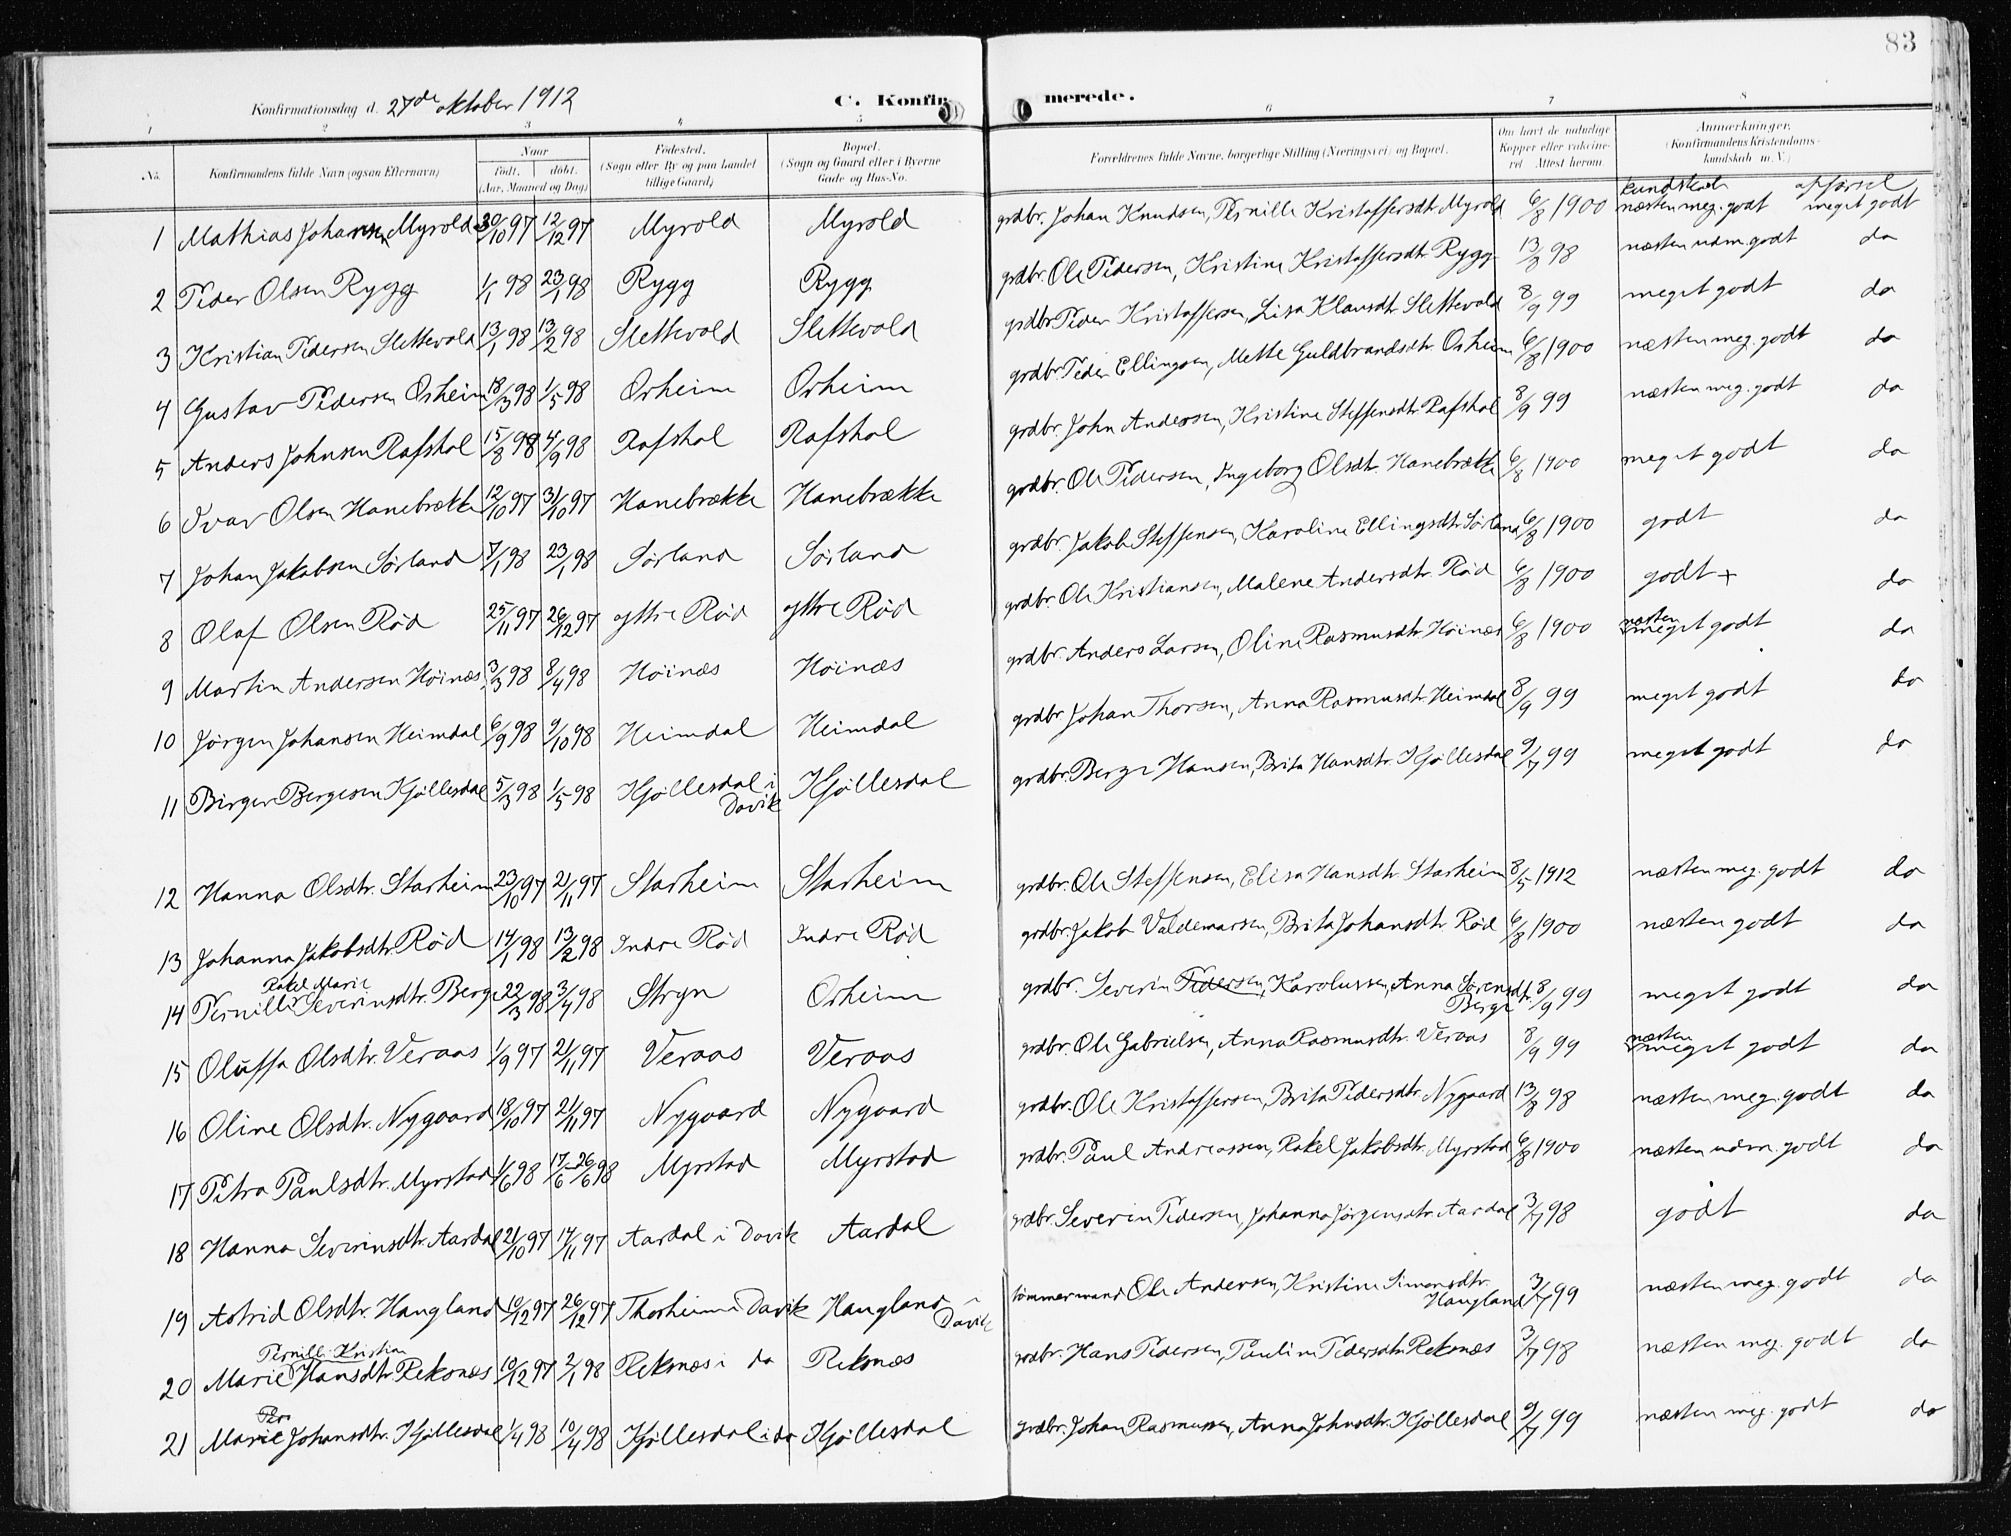 83
Konfirmationsdag d. 27de oktober 1912 C. Konfirmerede.
1 2 3 4 5 6 7 8
No. Konfirmandens fulde Navn (ogsaa Efternavn) Naar Født. døbt. (Aar, Maaned og Dag) Fødested. (Sogn eller By og paa Landet tillige Gaard) Bopæl. (Sogn og Gaard eller i Byerne Gade og Hus-No. Forældrenes fulde Navne, borgerlige Stilling (Næringsvei) og Bopæl. Om havt de naturlige Kopper eller vaccineret. Attest herom. Anmerkninger. (Konfirmandens Kristendomskundskab m. V.)
kundskab opførsel
1 Mathias Johansen Myrold 30/10 97 12/12 97 Myrold Myrold grdbr. Johan Knudsen, Pernille Kristoffersdtr. Myrold 6/8 1900 næsten meg. godt meget godt
2 Peder Olsen Rygg 1/1 98 23/1 98 Rygg Rygg grdbr. Ole Pedersen, Kristine Kristoffersdtr. Rygg 13/8 98 næsten udm. godt do
3 Kristian Pedersen Slettevold 13/1 98 13/2 98 Slettevold Slettevold grdbr. Peder Kristoffersen, Lisa Klausdtr. Slettevold 8/9 99 meget godt do
4 Gustav Pedersen Orheim 18/3 98 1/5 98 Orheim Orheim grdbr. Peder Ellingsen, Mette Guldbrandsdtr. Orheim 6/8 1900 næsten meg. godt do
5 Anders Johnsen Rafshol 15/8 98 4/9 98 Rafshol Rafshol grdbr. John Andersen, Kristine Steffensdtr. Rafshol 8/9 99 næsten meg. godt do
6 Ivar Olsen Hanebrække 12/10 97 31/10 97 Hanebrække Hanebrække grdbr. Ole Pedersen, Ingeborg Olsdtr. Hanebrække 6/8 1900 meget godt do
7 Johan Jakobsen Sørland 7/1 98 23/1 98 Sørland Sørland grdbr. Jakob Steffensen, Karoline Ellingsdtr. Sørland 6/8 1900 godt do
8 Olaf Olsen Rød 25/11 97 26/12 97 yttre Rød yttre Rød grdbr. Ole Kristiansen, Malene Andersdtr. Rød 6/8 1900 godt + do
9 Martin Andersen Høinæs 3/3 98 8/4 98 Høinæs Høinæs grdbr. Anders Larsen, Oline Rasmusdtr. Høinæs 6/8 1900 næsten meget godt do
10 Jørgen Johansen Heimdal 6/9 98 9/10 98 Heimdal Heimdal grdbr. Johan Thorsen, Anna Rasmusdtr. Heimdal 8/9 99 meget godt do
11 Birger Bergesen Kjøllesdal 5/3 98 1/5 98 Kjøllesdal i Davik Kjøllesdal grdbr. Berge Hansen, Brita Hansdtr. Kjøllesdal 9/7 99 meget godt do
12 Hanna Olsdtr. Starheim 23/10 97 21/11 97 Starheim Starheim grdbr. Ole Steffensen, Elisa Hansdtr. Starheim 8/5 1912 næsten meg. godt do
13 Johanna Jakobsdtr. Rød 14/1 98 13/2 98 Indre Rød Indre Rød grdbr. Jakob Valdemarsen, Brita Johansdtr. Rød 6/8 1900 næsten godt do
14 Pernille Rakel Marie Severinsdtr. Berge 22/3 98 3/4 98 Stryn Orheim grdbr. Severin Pedersen, Karolussen, Anna Sørensdtr. Berge 8/9 99 meget godt do
15 Oluffa Olsdtr. Veraas 1/9 97 21/11 97 Veraas Veraas grdbr. Ole Gabrielsen, Anna Rasmusdtr. Veraas 8/9 99 næsten meget godt do
16 Oline Olsdtr. Nygaard 18/10 97 21/11 97 Nygaard Nygaard grdbr. Ole Kristoffersen, Brita Pedersdtr. Nygaard 13/8 98 næsten meg. godt do
17 Petra Paulsdtr. Myrstad 1/6 98 17/6-26/6 98 Myrstad Myrstad grdbr. Paul Andreassen, Rakel Jakobsdtr. Myrstad 6/8 1900 næsten udm. godt do
18 Hanna Severinsdtr. Aardal 21/10 97 14/11 97 Aardal i Davik Aardal grdbr. Severin Pedersen, Johanna Jørgensdtr. Aardal 3/7 98 godt do
19 Astrid Olsdtr. Haugland 10/12 97 26/12 97 Thorheim i Davik Haugland i Davik tømmermand Ole Andersen, Kristine Simonsdtr. Haugland 3/7 99 næsten meg. godt do
20 Marie Pernille Kristine Hansdtr. Reksnæs 10/12 97 2/1 98 Reksnæs i do Reksnæs grdbr. Hans Pedersen, Pauline Pedersdtr. Reksnæs 3/7 98 næsten meg. godt do
21 Marie Johansdtr. Kjøllesdal 1/4 98 10/4 98 Kjøllesdal i do Kjøllesdal grdbr. Johan Rasmussen, Anna Johnsdtr. Kjøllesdal 9/7 99 næsten meg. godt do